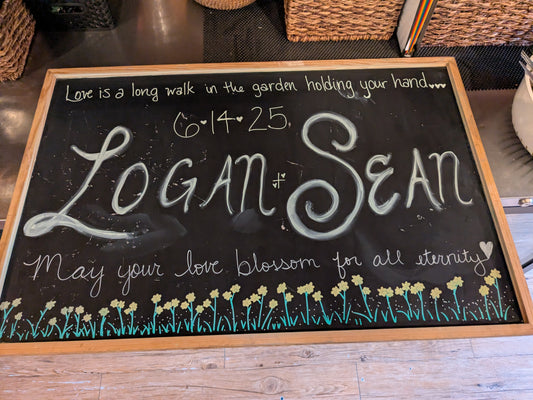 Love is a long walk in the garden holding your hand...
6•14•25
LOGAN + SEAN
May your love blossom for all eternity